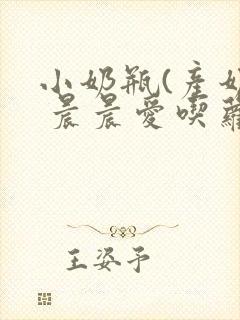 小奶瓶(產奶
晨晨愛喫蘿
王姿予